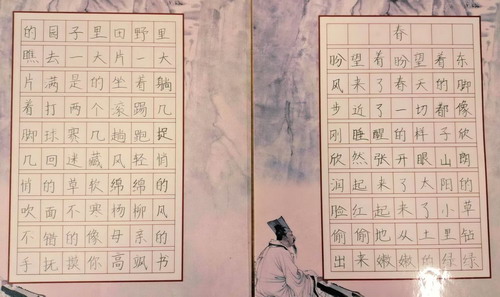 春
盼望着盼望着东
风来了春天的脚
步近了一切都像
刚睡醒的样子欣
欣然张开眼山朗
润起来了大阳的
脸红起来了小草
偷偷地从土里钻
出来嫩嫩的绿绿
的园子里田野里
瞧去一大片一大
片满是的坐着躺
着打两个滚踢几
脚球赛几趟跑捉
几回迷藏风轻悄
悄的草软绵绵的
吹面不寒杨柳风
不错的像母亲的
手抚摸你高飒书